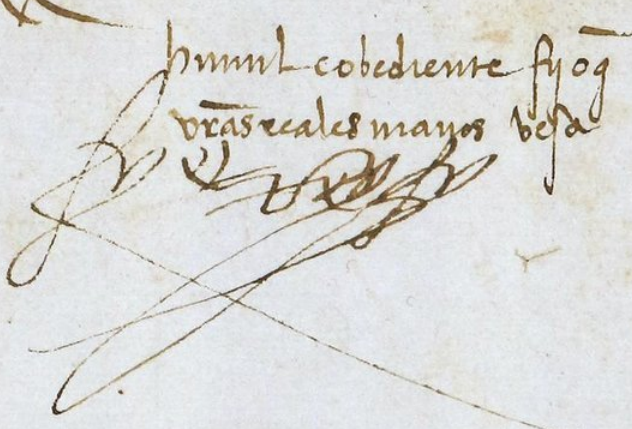 humil e obediente fijo q̄
vr̄as reales manos vesa